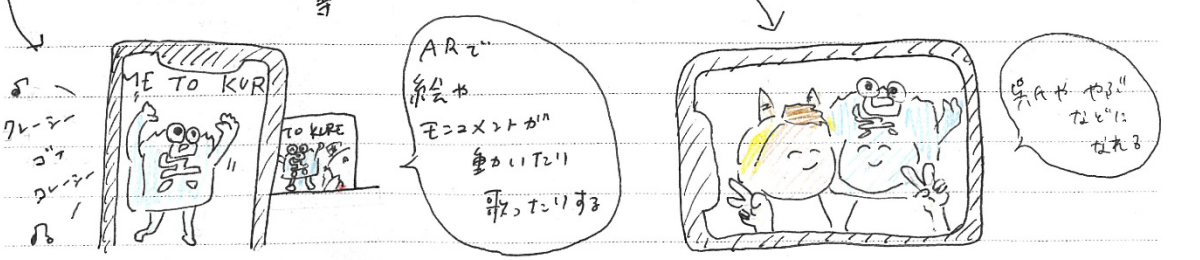 ♪
クレーシー
ゴナ
クレーシー
♫
ME TO KUR
呉
TO KURE
ARで
絵や
モニュメントが
動いたり
歌ったりする
呉氏や
などに
なれる